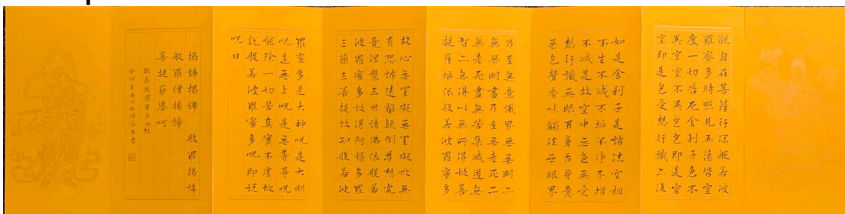 觀自在菩薩行深般若波
羅蜜多時照見五蘊皆空
度一切苦厄舍利子色不
異空空不異色色即是空
空即是色受想行識亦復
如是舍利子是諸法空相
不生不滅不垢不淨不增
不減是故空中無色無受
想行識無眼耳鼻舌身意
無色聲香味觸法無眼界
乃至無意識界無無明亦
無無明盡乃至無老死亦
無老死盡無苦集滅道無
智亦無得以無所得故菩
提薩埵依般若波羅蜜多
故心無罣礙無罣礙故無
有恐怖遠離顛倒夢想究
竟涅槃三世諸佛依般若
波羅蜜多故得阿耨多羅
三藐三菩提故知般若波
羅蜜多是大神呪是大明
呪是無上呪是無等等呪
能除一切苦真實不虛故
說般若波羅蜜多呪即說
呪曰
揭諦揭諦 般羅揭諦
般羅僧揭諦
菩提莎婆呵
般若波羅蜜多心經